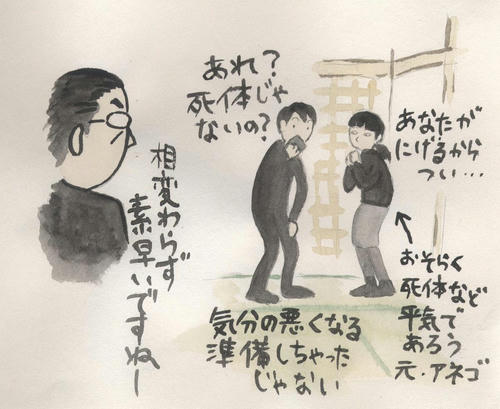 あれ?
死体じゃ
ないの?
あなたが
にげるから
つい…
相変わらず
素早いですねー
気分の悪くなる
準備しちゃった
じゃない
おそらく
死体など
平気で
あろう
元・アネゴ